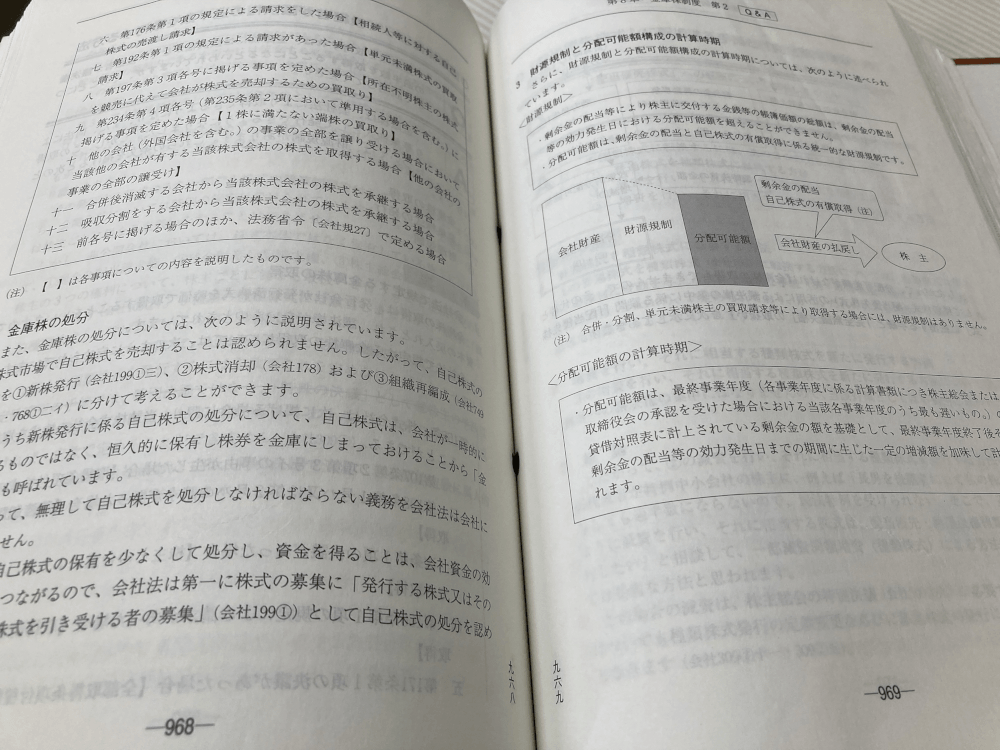 六　第176条第1項の規定による請求をした場合【相続人等に対する自己
株式の売渡し請求】
七　第192条第1項の規定による請求があった場合【単元未満株式の買取
請求】
八　第197条第3項各号に掲げる事項を定めた場合【所在不明株主の株式
を競売に代えて会社が株式を売却するための買取り】
九　第234条第4項各号（第235条第2項において準用する場合を含む。）に
掲げる事項を定めた場合【1株に満たない端株の買取り】
十　他の会社（外国会社を含む。）の事業の全部を譲り受ける場合において
当該他の会社が有する当該株式会社の株式を取得する場合【他の会社の
事業の全部の譲受け】
十一　合併後消滅する会社から当該株式会社の株式を承継する場合
十二　吸収分割をする会社から当該株式会社の株式を承継する場合
十三　前各号に掲げる場合のほか、法務省令〔会社規27〕で定める場合
（注）　【　】は各事項についての内容を説明したものです。
金庫株の処分
また、金庫株の処分については、次のように説明されています。
株式市場で自己株式を売却することは認められません。したがって、自己株式の
を①新株発行（会社199①三）、②株式消却（会社178）および③組織再編成（会社749
・768①二イ）に分けて考えることができます。
うち新株発行に係る自己株式の処分について、自己株式は、会社が一時的に
るものではなく、恒久的に保有し株券を金庫にしまっておけることから「金
も呼ばれています。
って、無理して自己株式を処分しなければならない義務を会社法は会社に
せん。
自己株式の保有を少なくして処分し、資金を得ることは、会社資金の効
つながるので、会社法は第一に株式の募集に「発行する株式又はその
株式を引き受ける者の募集」（会社199①）として自己株式の処分を認め
九六八
―968―
第2　Q&A
3　財源規制と分配可能額構成の計算時期
さらに、財源規制と分配可能額構成の計算時期については、次のように述べられ
ています。
＜財源規制＞
・剰余金の配当等により株主に交付する金銭等の帳簿価額の総額は、剰余金の配当
等の効力発生日における分配可能額を超えることができません。
・分配可能額は、剰余金の配当と自己株式の有償取得に係る統一的な財源規制です。
会社財産
財源規制
分配可能額
剰余金の配当
自己株式の有償取得（注）
会社財産の払戻し
株　主
（注）　合併・分割、単元未満株主の買取請求等により取得する場合には、財源規制はありません。
＜分配可能額の計算時期＞
・分配可能額は、最終事業年度（各事業年度に係る計算書類につき株主総会または
取締役会の承認を受けた場合における当該各事業年度のうち最も遅いもの。）の
貸借対照表に計上されている剰余金の額を基礎として、最終事業年度終了後そ
剰余金の配当等の効力発生日までの期間に生じた一定の増減額を加味して計
れます。
九六九
―969―